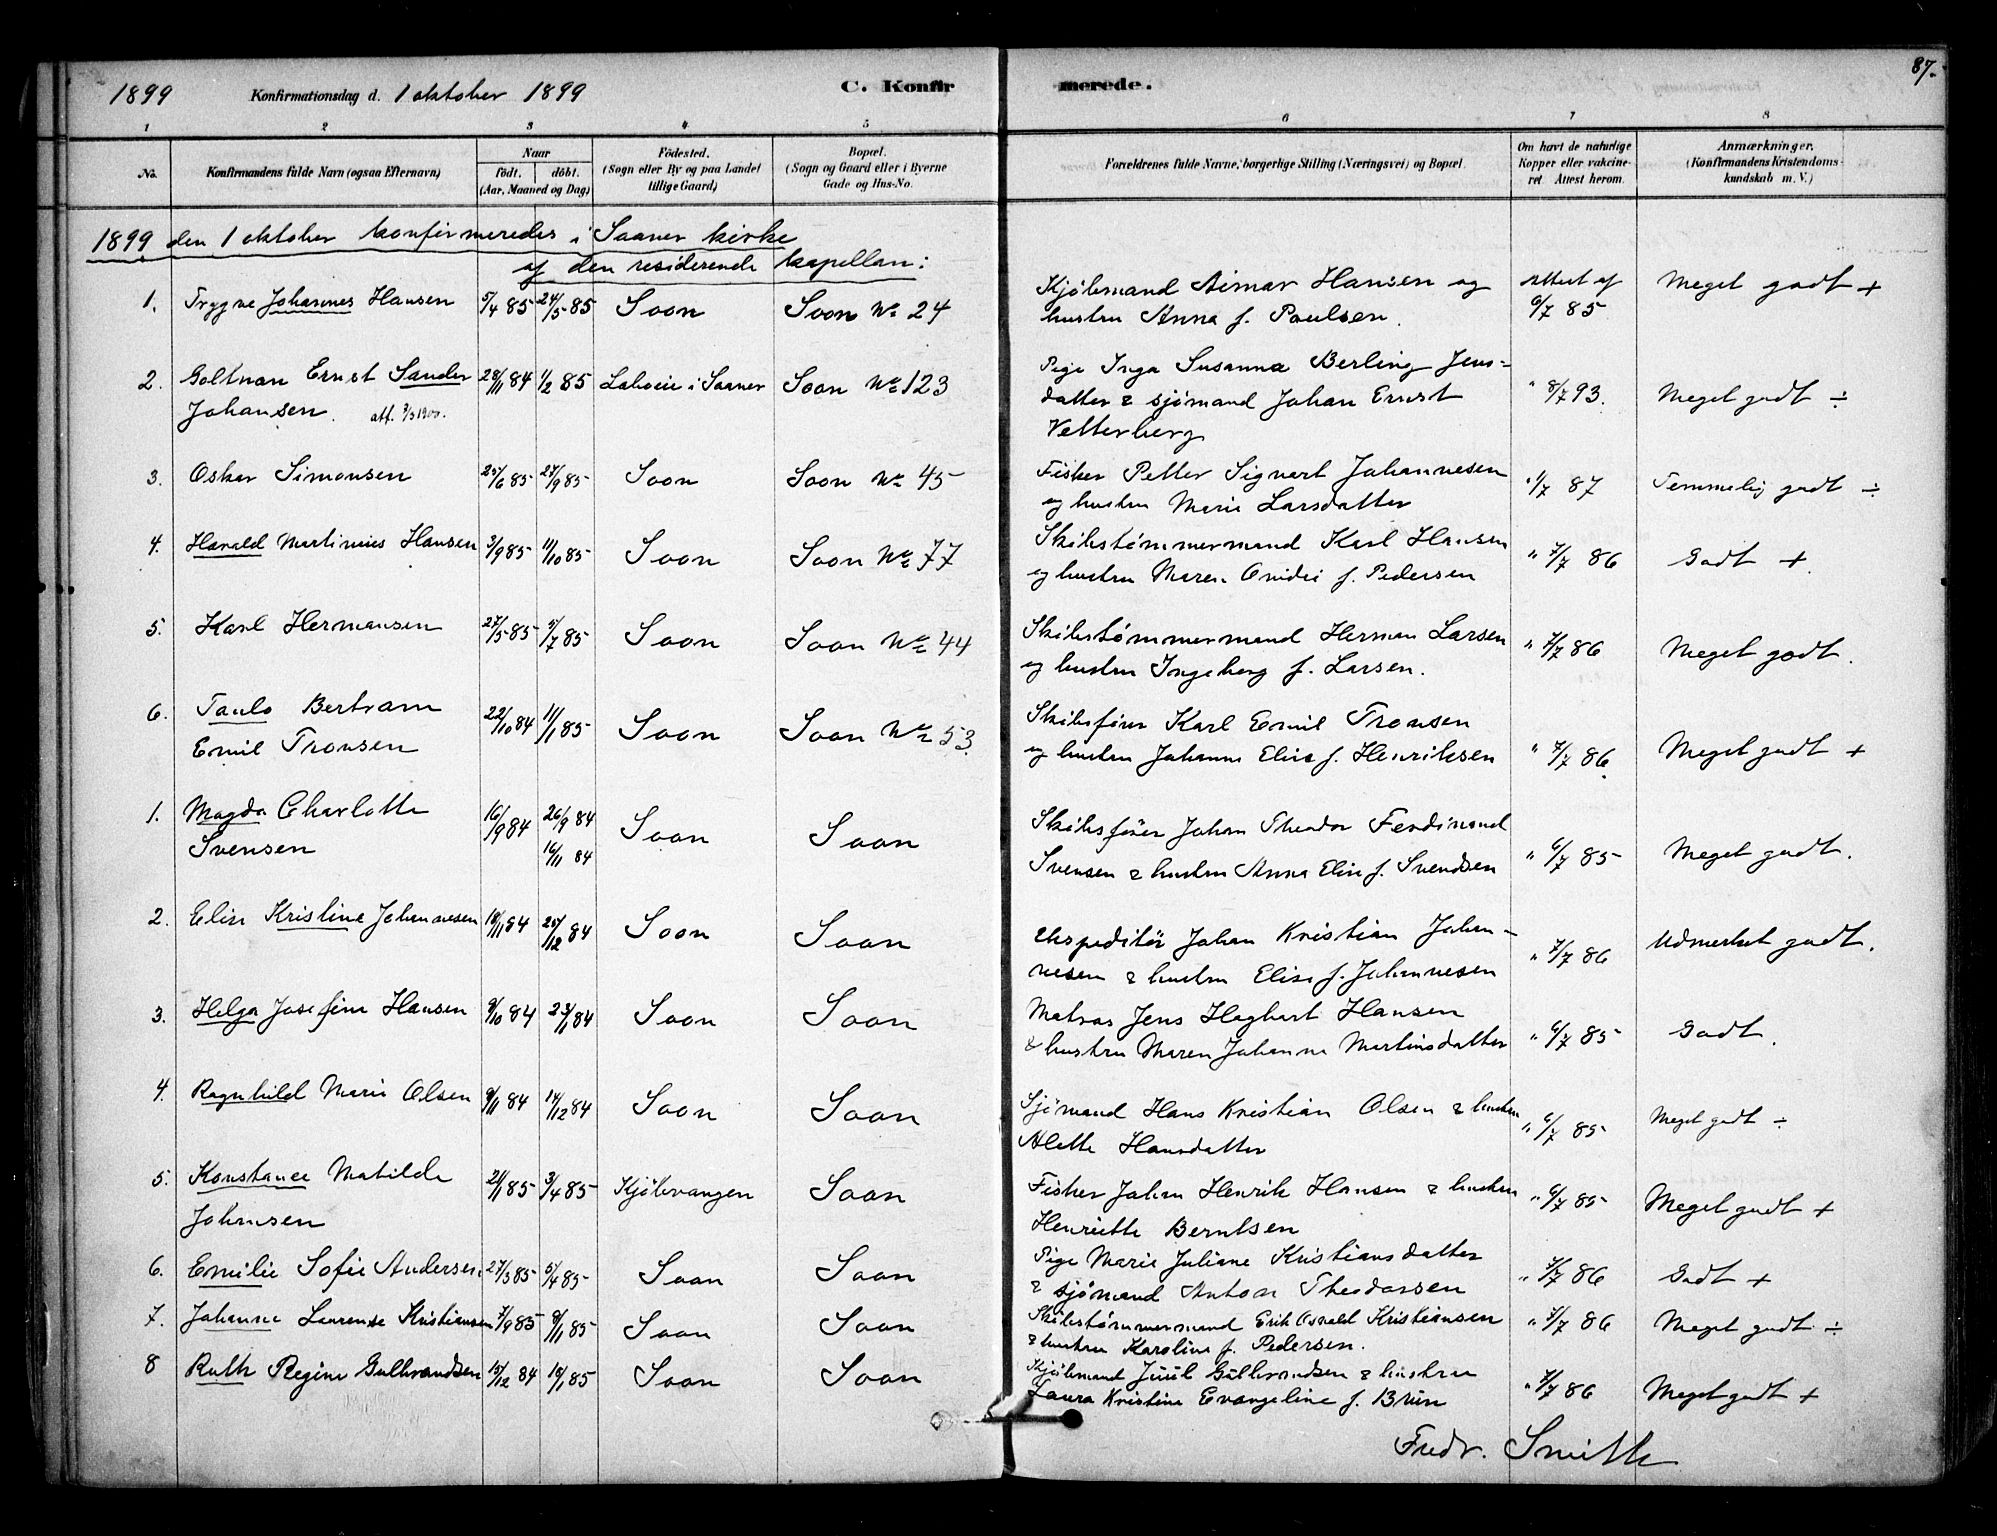 1899 Konfirmationsdag d. 1 oktober 1899 C. Konfirmerede. 87.
1 2 3 4 5 6 7 8
No. Konfirmandens fulde Navn (ogsaa Efternavn) Naar født. døbt. (Aar, Maaned og Dag) Fødested. (Sogn eller By og paa Landet tillige Gaard) Bopæl. (Sogn og Gaard eller i Byerne Gade og Hus-No. Forældrenes fulde Navne, borgerlige Stilling (Næringsvei) og Bopæl. Om havt de naturlige Kopper eller vakcineret. Attest herom. Anmærkninger. (Konfirmandens Kristendomskundskab m. V.)
1899 den 1 oktober konfirmeredes i Saaner kirke
af den residerende kapellan:
1. Trygve Johannes Hansen 5/4 85 24/5 85 Soon Soon No 24 Kjøbmand Aimar Hansen og Attest af Meget godt +
hustru Anna f. Paulsen. 6/7 85
2. Goltman Ernst Sander 28/11 84 1/2 85 Labseie i Saaner Soon No 123 Pige Inga Susanna Berling Jens-
Johansen. att. 3/3 1900. datter & sjømand Johan Ernst " 8/7 93. Meget godt ÷
Vetterberg
3. Oskar Simonsen 25/6 85 27/9 85 Soon Soon No 45 Fisker Petter Sigvart Johannesen " 1/7 87 Temmelig godt ÷
og hustru Marie Larsdatter
4. Harald Martinius Hansen 3/9 85 11/10 85 Soon Soon No 77 Skibstømmermand Karl Hansen " 7/7 86 Godt +
og hustru Maren Ovidie f. Pedersen
5. Karl Hermansen 27/5 85 5/7 85 Soon Soon No 44 Skibstømmermand Herman Larsen " 7/7 86 Meget godt.
og hustru Ingeborg f. Larsen.
6. Paulo Bertram 22/10 84 11/1 85 Soon Soon No 53. Skibsfører Karl Emil Tronsen
Emil Tronsen og hustru Johanne Elise f. Henriksen " 7/7 86. Meget godt +
1. Magda Charlotte 16/9 84 26/9 84 Soon Soon Skibsfører Johan Theodor Ferdinand
Svensen 16/11 84 Svensen & hustru Anna Elise f. Svendsen " 6/7 85 Meget godt.
2. Elise Kristine Johannesen 18/11 84 25/12 84 Soon Soon Ekspeditør Johan Kristian Johan- " 7/7 86 Udmerket godt.
nesen & hustru Elise f. Johannesen
3. Helga Josefine Hansen 9/10 84 23/1 84 Soon Soon Matros Jens Hagbart Hansen " 6/7 85 Godt.
& hustru Maren Johanne Martinsdatter
4. Ragnhild Marie Olsen 9/11 84 14/12 84 Soon Soon Sjømand Hans Kristian Olsen & hustru " 6/7 85 Meget godt ÷
Alette Hansdatter
5. Konstance Matilde 21/1 85 3/4 85 Kjøbvangen Soon Fisker Johan Henrik Hansen & hustru " 6/7 85 Meget godt +
Johansen Henriette Berntsen
6. Emilie Sofie Andersen 27/3 85 5/4 85 Soon Soon Pige Marie Juliane Kristiansdatter " 7/7 86 Godt +
& sjømand Anton Theodorsen
7. Johanne Laurense Kristiansen 7/9 85 8/11 85 Soon Soon Skibstømmermand Erik Osvald Kristiansen " 7/7 86 Meget godt ÷
& hustru Karoline f. Pedersen.
8 Ruth Regine Gulbrandsen 15/12 84 18/1 85 Soon Soon Kjøbmand Juul Gulbrandsen & hustru
Laura Kristine Evangeline f. Bruun " 7/7 86 Meget godt +
Fredr. Smith